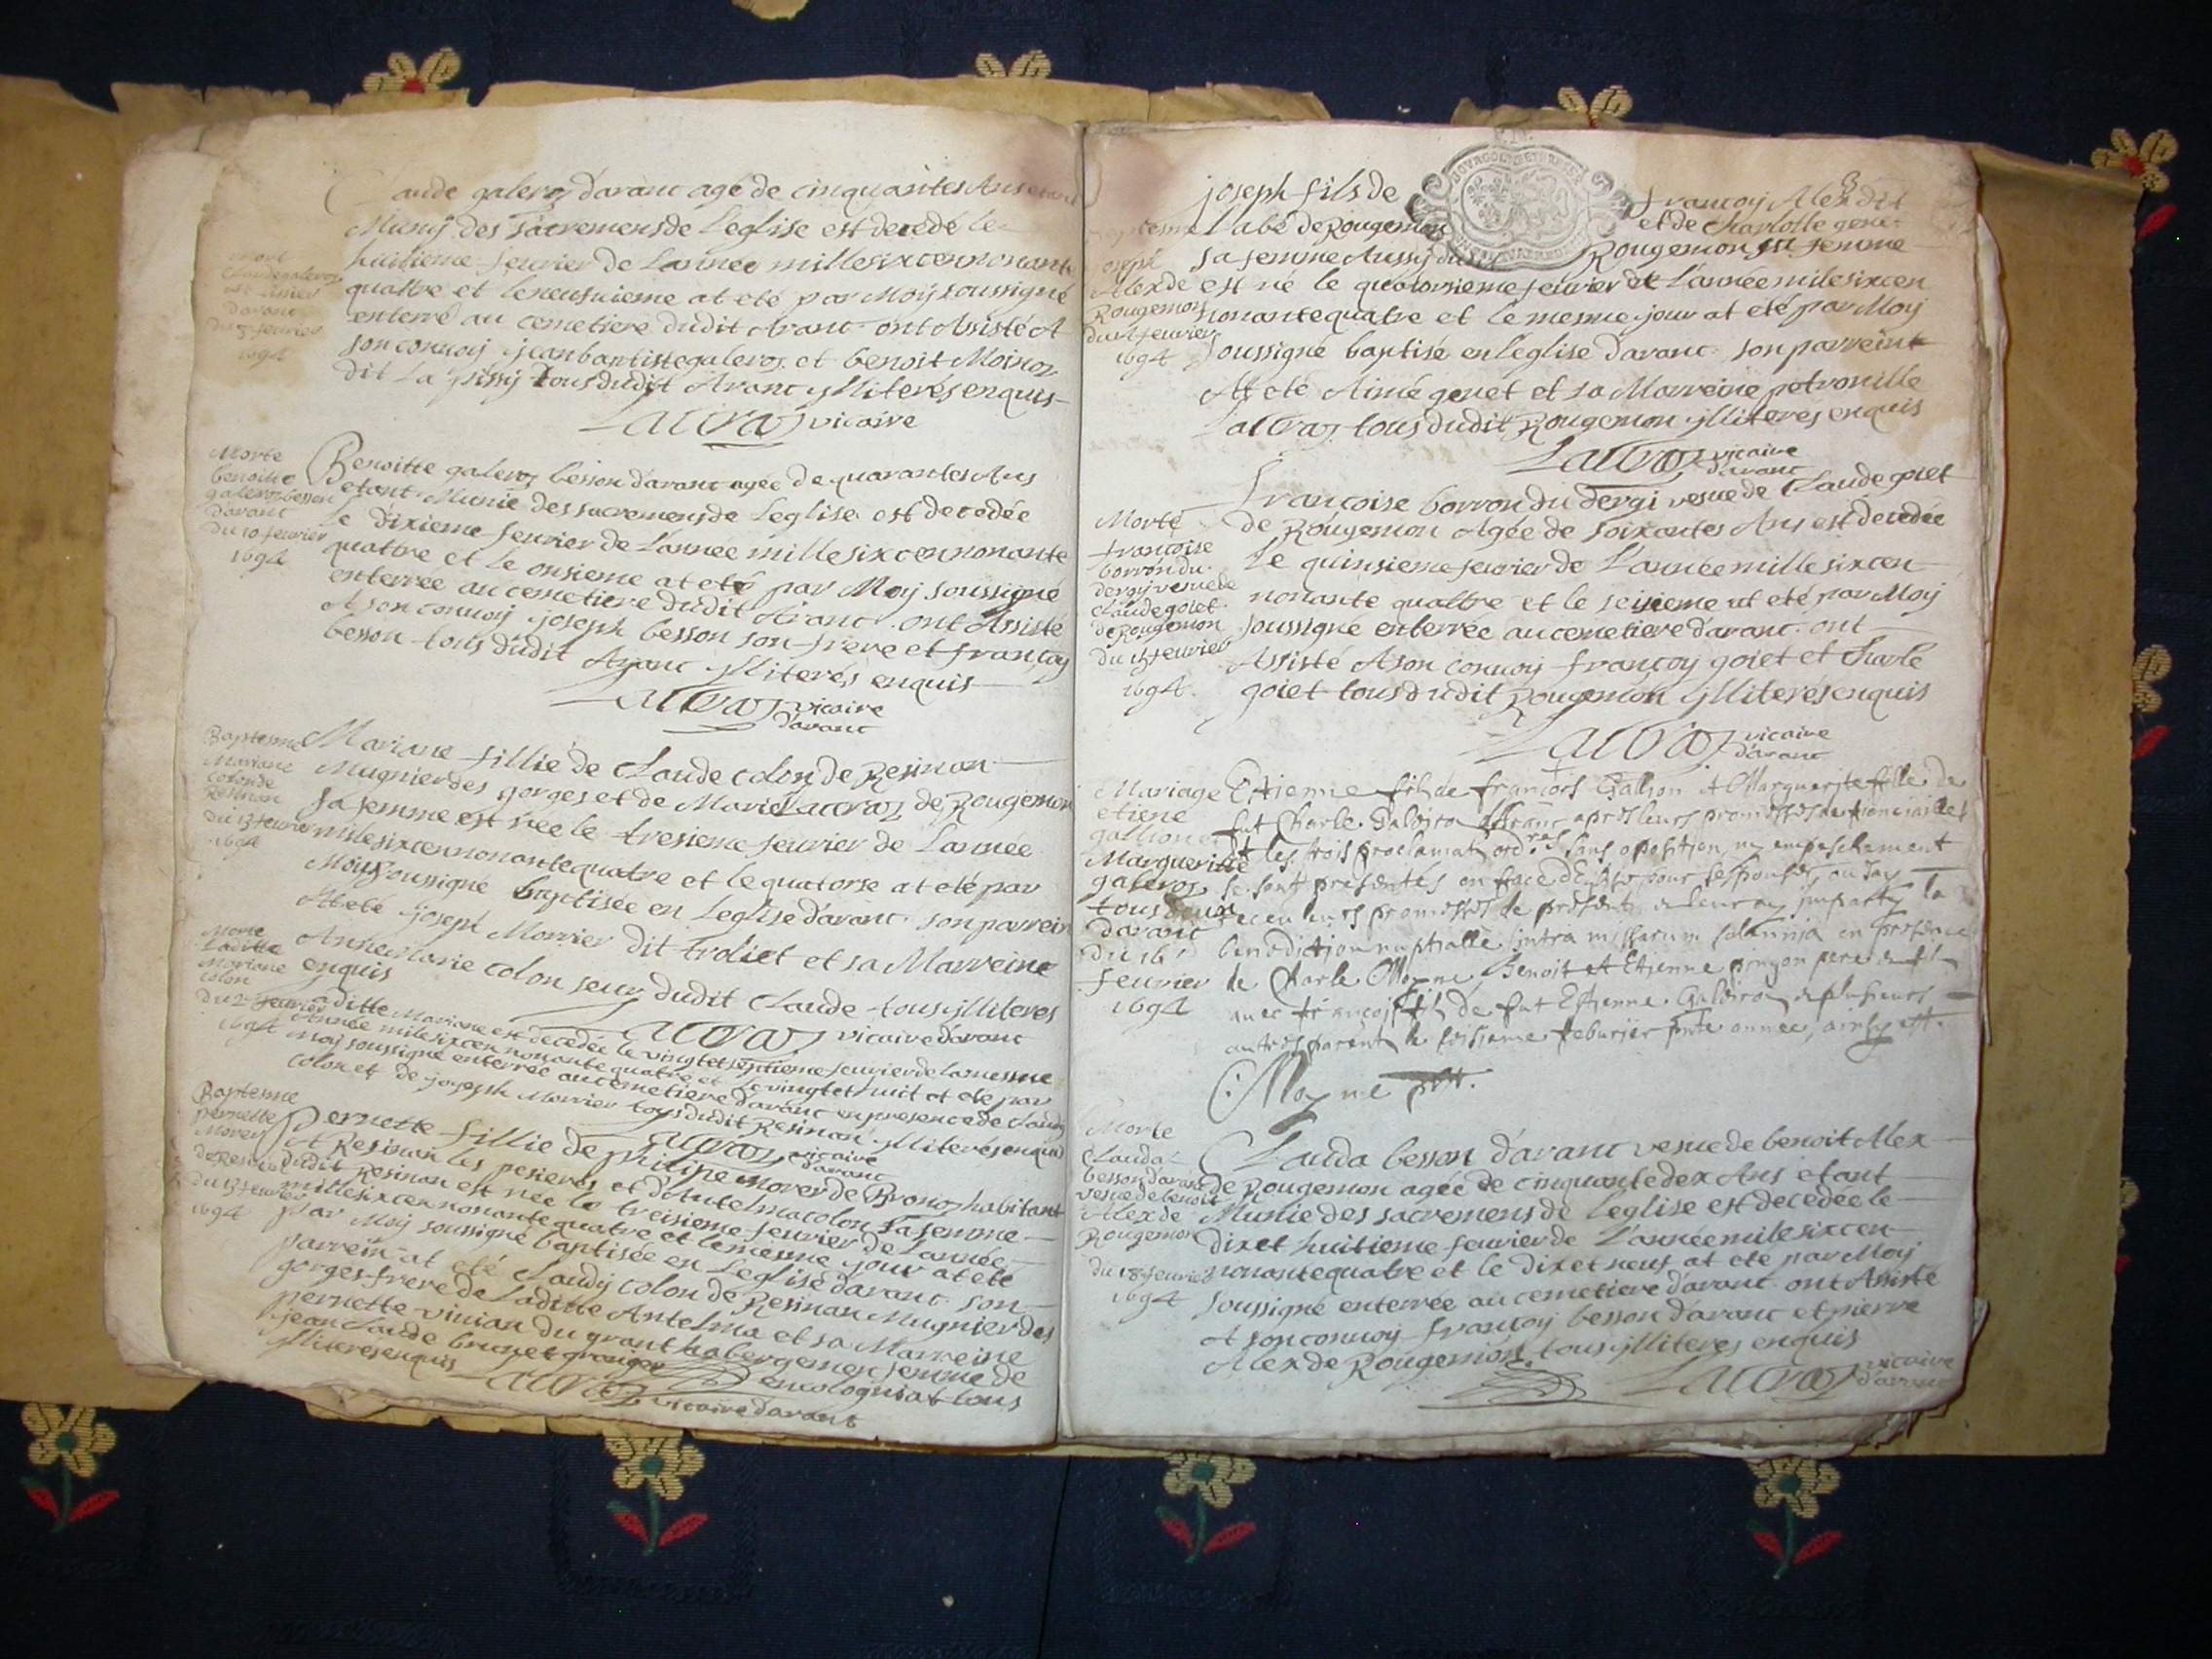 Claude galeroz d'aranc agé de cinquantes Ans etant
Muny des sacremens de l'eglise est decedé le
huitieme feurier de L'année mille six cen nonante
quattre et le neufuieme at eté par Moÿ soussigné
enterré au cemetiere dudit Aranc ont Assisté A
son conuoÿ jean baptiste galeroz et benoit Moinoz
dit La tous dudit Aranc ylliterés enquis
Lacraz vicaire
Morte
benoitte
galeroz besson
d'aranc
du 10 feurier
1694
Benoitte galeroz besson d'aranc agée de quarantes Ans
etant Munie des sacremens de l'eglise est decedée
le dixieme feurier de L'année mille six cen nonante
quattre et le onsieme at eté par Moÿ soussigné
enterrée au cemetiere dudit Aranc ont Assisté
A son conuoÿ joseph besson son frere et françoy
besson tous dudit Aranc ylliterés enquis
Lacraz vicaire
d'aranc
Baptesme
Mariane
colon de
Resinan
du 13 feurier
1694
Mariane fillie de Claude colon de Resinan
Mugnier des gorges et de Marie Lacraz de Rougemon
sa femme est née le tresieme feurier de L'année
mile six cen nonante quatre et le quatorse at eté par
Moÿ soussigné baptisée en L'eglise d'aranc son parrein
At eté joseph Morrier dit troliet et sa Marreine
Anne Marie colon seur dudit Claude tous ylliterés
enquis
Lacraz vicaire d'aranc
Morte
Laditte
Mariane
colon
1694
Laditte Mariane est decedée le vingt et septieme feurier de la mesme
Année mile six cen nonante quatre et le vingt et huit at eté par
Moÿ soussigné enterrée au cemetiere d'aranc en presence de Claude
colon et de joseph Morrier tous dudit Resinan ylliterés enquis
Lacraz vicaire
d'aranc
Baptesme
pernette
Morey
de Resinan
du 13 feurier
1694
Pernette fillie de philipe Morey de Bronoz habitant
A Resinan les pesieres et d'Antelma colon sa femme
dudit Resinan est née le treisieme feurier de L'année
mille six cen nonante quatre et le mesme jour at eté
par Moÿ soussigné baptisée en L'eglise d'aranc son
parrein at eté Claudÿ colon de Resinan Mugnier des
gorges frere de Laditte Antelma et sa Marreine
pernette vinian du grant habergemen femme de
jean Claude brunet granger en cologniat tous
ylliterés enquis Lacraz vicaire d'aranc
joseph fils de françoy Alex dit
L'abé de Rougemon et de Charlotte
sa femme Aussy du Rougemon
est né le quatorsieme feurier de L'année mile six cen
nonante quatre et le mesme jour at eté par Moÿ
soussigné baptisé en l'eglise d'aranc son parreint
At eté Aimé genet et sa Marreine petronille
Lacraz tous dudit Rougemon ylliterés enquis
Lacraz vicaire
d'aranc
joseph
Alex de
Rougemon
1694
Morte
françoise
borron du
dergÿ vesue de
Claude goiet
de Rougemon
du 15 feurier
1694
Françoise borron du dergi vesue de Claude goiet
de Rougemon Agée de soixantes Ans est decedée
Le quinsieme feurier de L'année mille six cen
nonante quattre et le seisieme at eté par Moÿ
soussigné enterrée au cemetiere d'aranc ont
Assisté A son conuoÿ françoy goiet et Charle
goiet tous dudit Rougemon ylliterés enquis
Lacraz vicaire
d'aranc
Mariage
etiene
gallion et
Marguerite
galeroz
tous deux
d'aranc
du 16
feurier
1694
Estienne fils de françois Gallion et Marguerite fille de
fut Charle Galeiroz d'Aranc apres leurs promesses de fiancialles
et les trois proclamats sans oposition ny empeschement
se sont presentés en face d'Eglise pour ou Jay
receu leurs promesses de present et leur ay imparty la
benediction nuptialle intra missarum solannia en presence
de Charle Moyne Benoit et Etienne pere et fils
auec françois fils de fut Estienne Galeiroz et plusieurs
autres parents le seisieme feburier année ainsy est
Moyne
Morte
Clauda
besson d'aranc
vesue de benoit
Alex de
Rougemon
du 18 feurier
1694
Clauda besson d'aranc vesue de benoit Alex
de Rougemon agée de cinquante dex Ans etant
Munie des sacremens de l'eglise est decedée le
dix et huitieme feurier de L'année mile six cen
nonante quatre et le dix et neuf at eté par Moÿ
soussigné enterrée au cemetiere d'aranc ont Assisté
A son conuoÿ françoy besson d'aranc et pierre
Alex de Rougemon tous ylliteres enquis
Lacraz vicaire
d'aranc